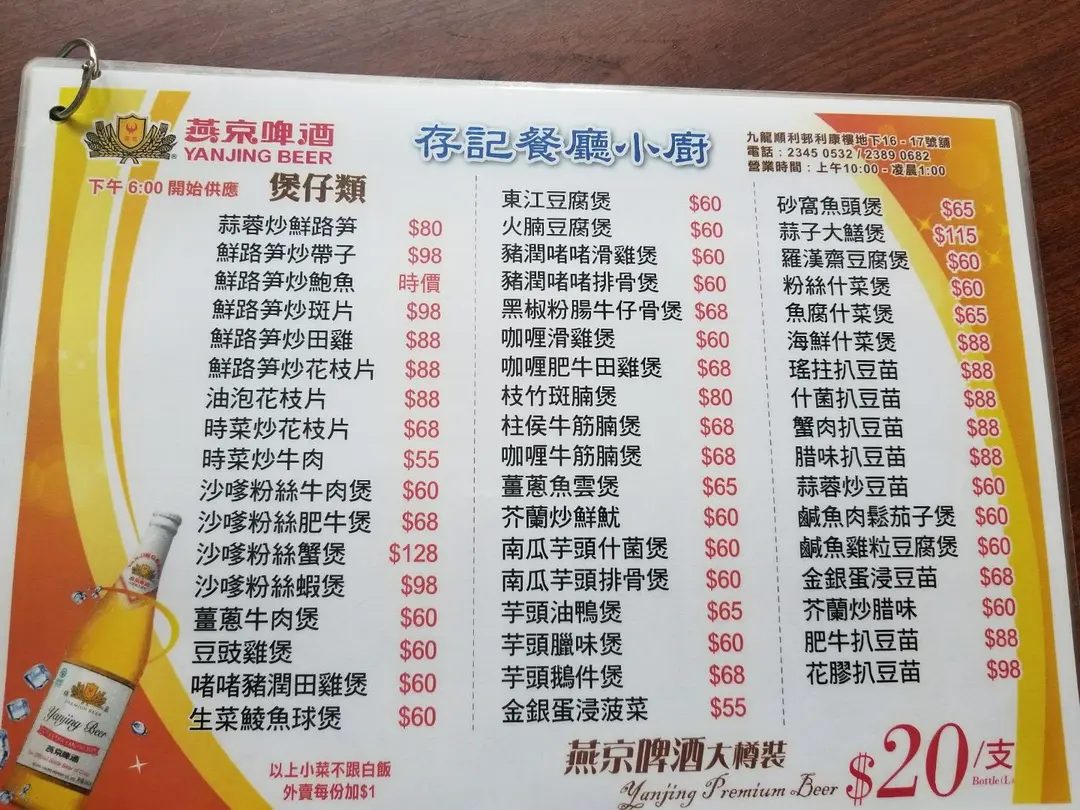 燕京啤酒
YANJING BEER
存記餐廳小廚
九龍順利邨利康樓地下16 - 17號舖
電話：2345 0532 / 2389 0682
營業時間：上午10:00 - 凌晨1:00
下午 6:00 開始供應
煲仔類
蒜蓉炒鮮路笋 $80
鮮路笋炒帶子 $98
鮮路笋炒鮑魚 時價
鮮路笋炒斑片 $98
鮮路笋炒田雞 $88
鮮路笋炒花枝片 $88
油泡花枝片 $88
時菜炒花枝片 $68
時菜炒牛肉 $55
沙嗲粉絲牛肉煲 $60
沙嗲粉絲肥牛煲 $68
沙嗲粉絲蟹煲 $128
沙嗲粉絲蝦煲 $98
薑蔥牛肉煲 $60
豆豉雞煲 $60
啫啫豬潤田雞煲 $60
生菜鯪魚球煲 $60
東江豆腐煲 $60
火腩豆腐煲 $60
豬潤啫啫滑雞煲 $60
豬潤啫啫排骨煲 $60
黑椒粉腸牛仔骨煲 $68
咖喱滑雞煲 $60
咖喱肥牛田雞煲 $68
枝竹斑腩煲 $80
柱侯牛筋腩煲 $68
咖喱牛筋腩煲 $68
薑蔥魚雲煲 $65
芥蘭炒鮮魷 $60
南瓜芋頭什菌煲 $60
南瓜芋頭排骨煲 $60
芋頭油鴨煲 $65
芋頭臘味煲 $60
芋頭鵝件煲 $68
金銀蛋浸菠菜 $55
砂窩魚頭煲 $65
蒜子大鱔煲 $115
羅漢齋豆腐煲 $60
粉絲什菜煲 $60
魚腐什菜煲 $65
海鮮什菜煲 $88
瑤拄扒豆苗 $88
什菌扒豆苗 $88
蟹肉扒豆苗 $88
腊味扒豆苗 $88
蒜蓉炒豆苗 $60
鹹魚肉鬆茄子煲 $60
鹹魚雞粒豆腐煲 $60
金銀蛋浸豆苗 $68
芥蘭炒腊味 $60
肥牛扒豆苗 $88
花膠扒豆苗 $98
以上小菜不跟白飯
外賣每份加$1
燕京啤酒大樽裝
Yanjing Premium Beer
$20/支
Bottle(L)
Yanjing Beer
燕京啤酒